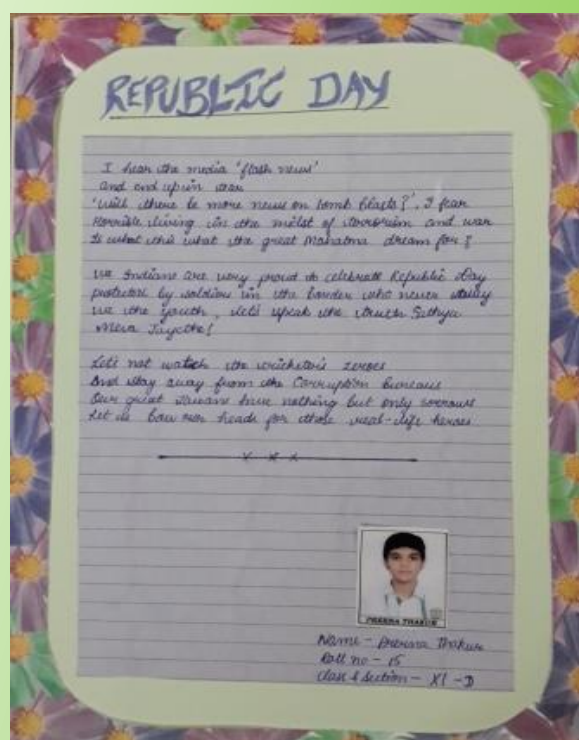 REPUBLIC DAY
I hear the media 'flash news'
and end up in tear
'will there be more news on bomb blasts?', I fear
Horrible living in the midst of terrorism and war
Is what this what the great Mahatma dream for?
We Indians are very proud to celebrate Republic Day
protected by soldiers in the border who never
We the youth, let's speak the truth Sathya
Meva Jayethe!
Let's not watch the cricketers zeroes
And stay away from the Corruption bureaus
Our great Jawans have nothing but only sorrows
Let us bow our heads for those real-life heroes
PRERNA THAKUR
Name - Prerna Thakur
Roll no - 15
Class & Section - XI - D